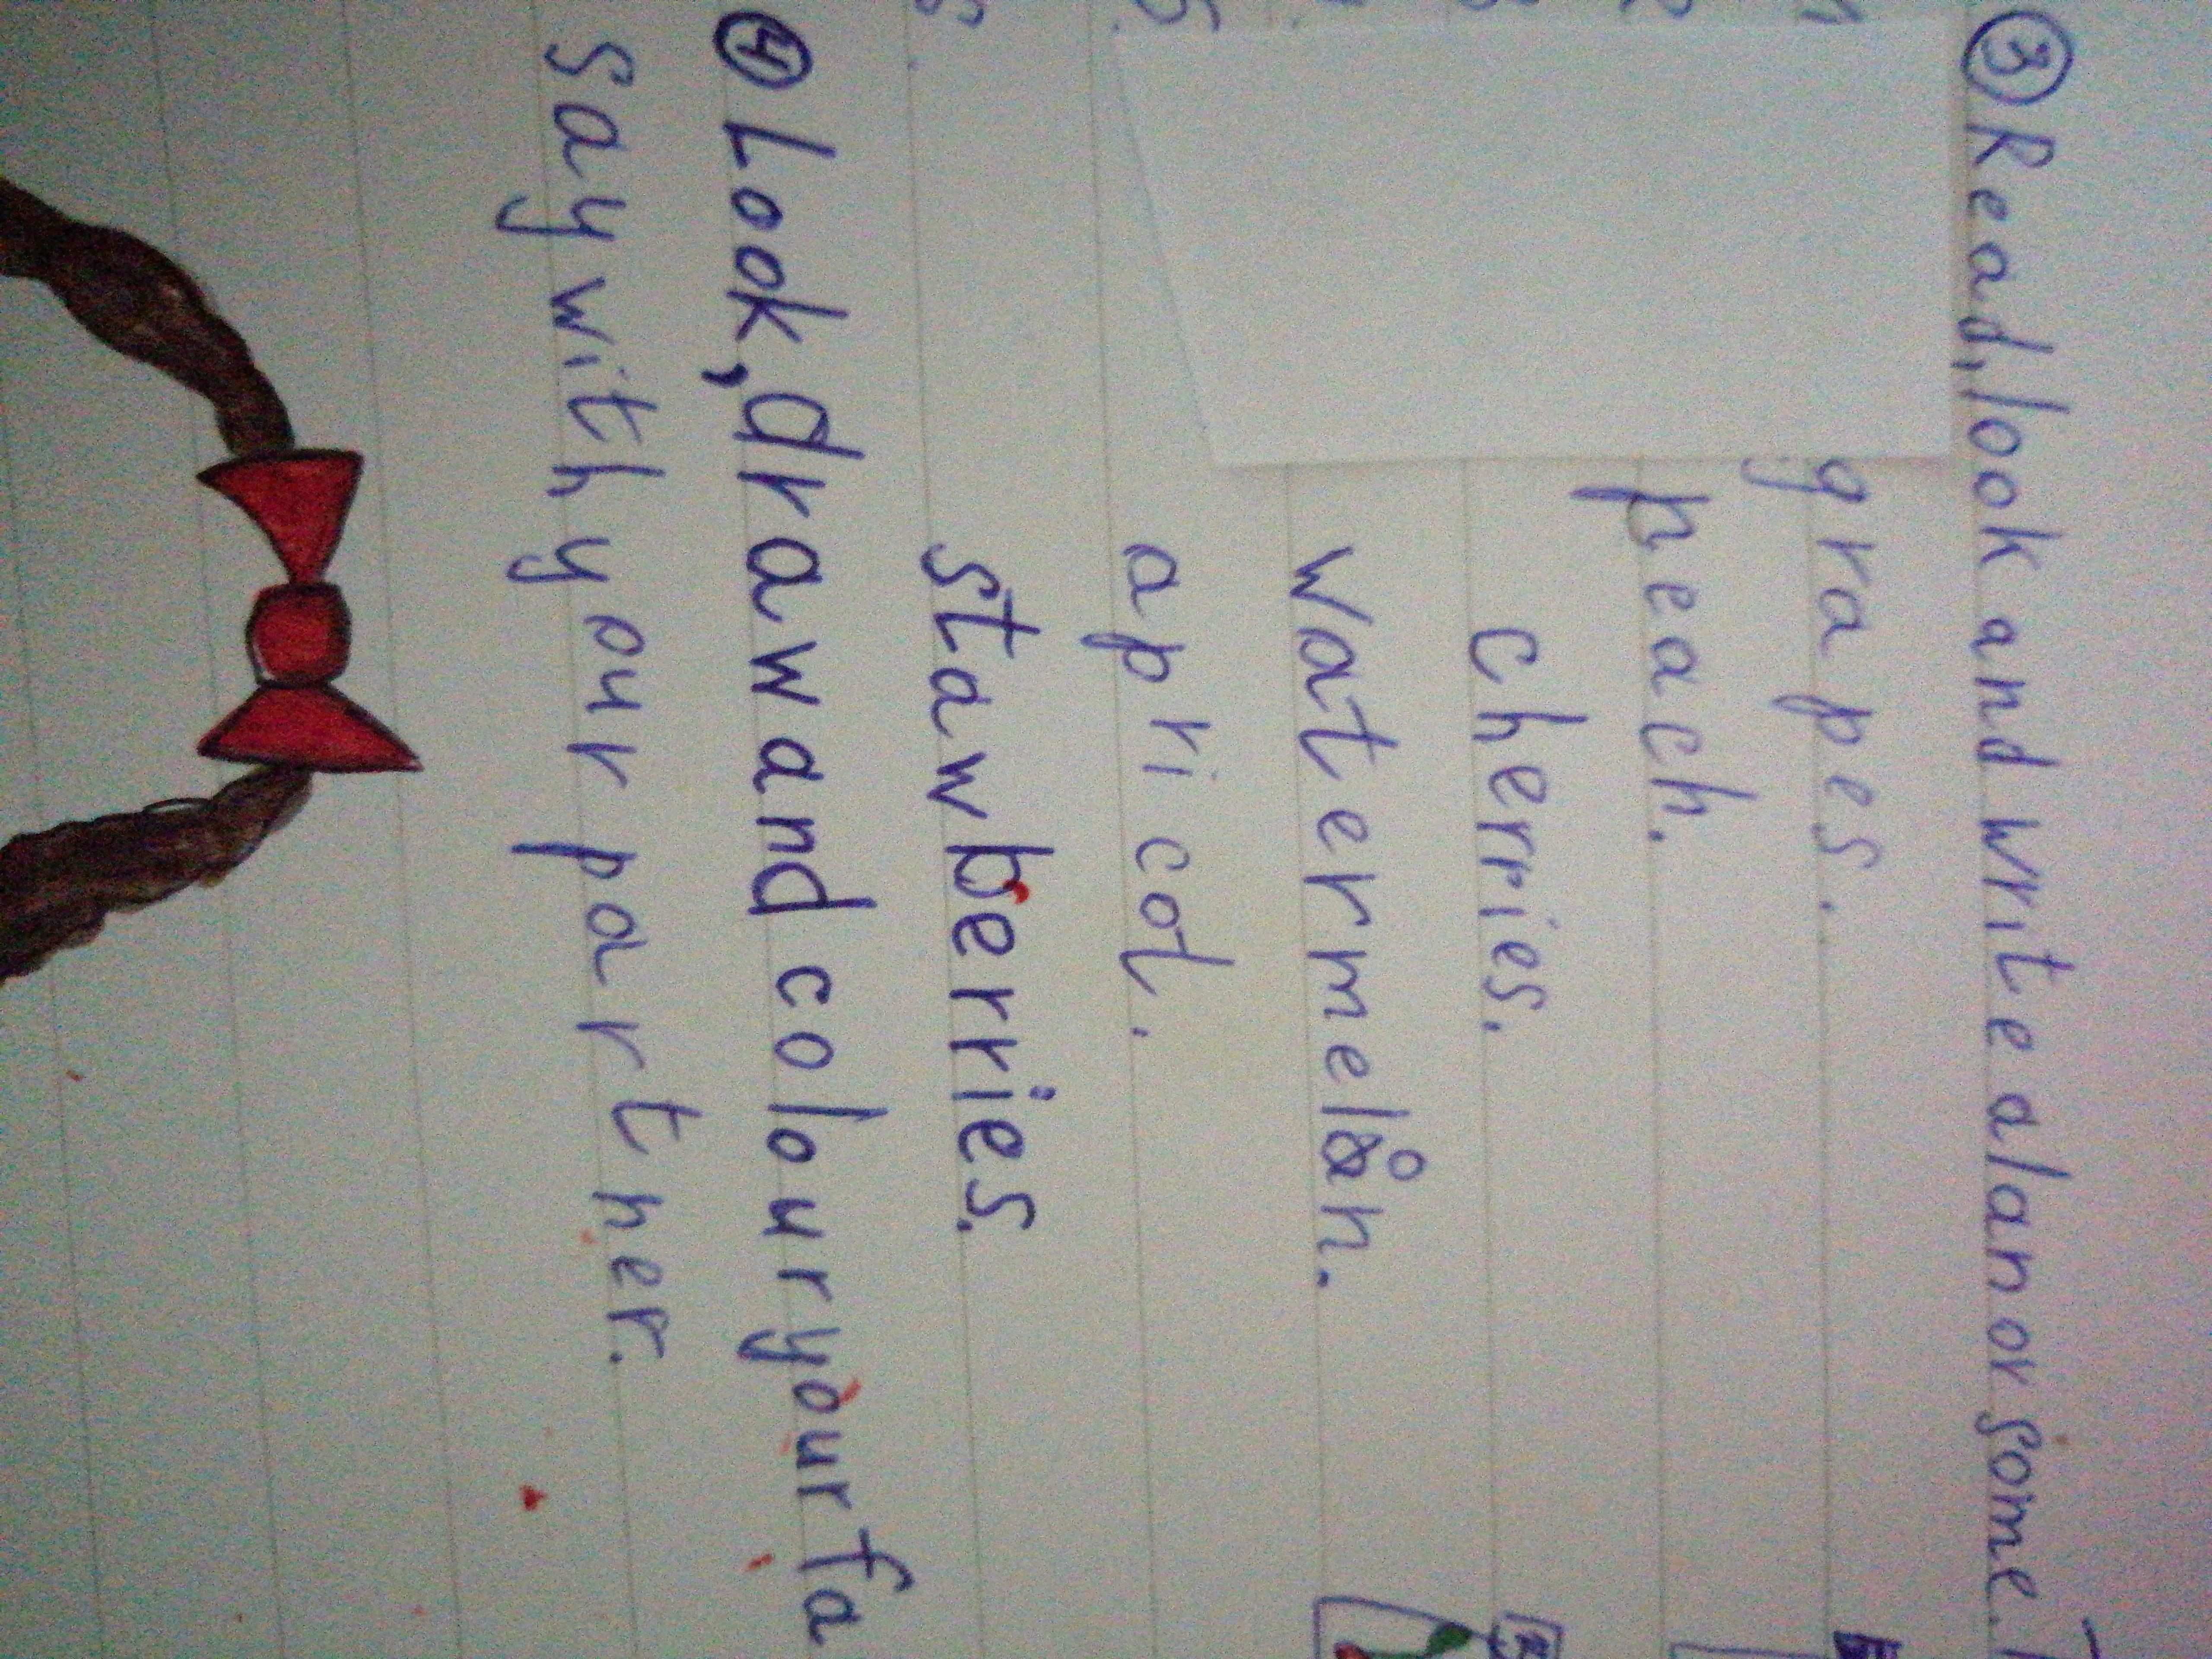 ③ Read, look and write a/an or some.
grapes.
peach.
cherries.
watermelon.
5 apricot.
stawberries.
④ Look, draw and colour your fa
Say with your partner.